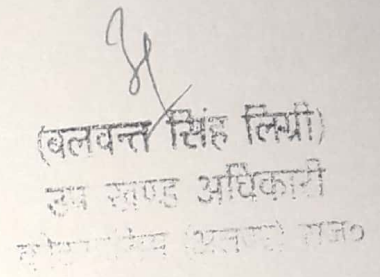 (बलवन्त सिंह लिग्री)
उप खण्ड अधिकारी
(अलवर) राज०